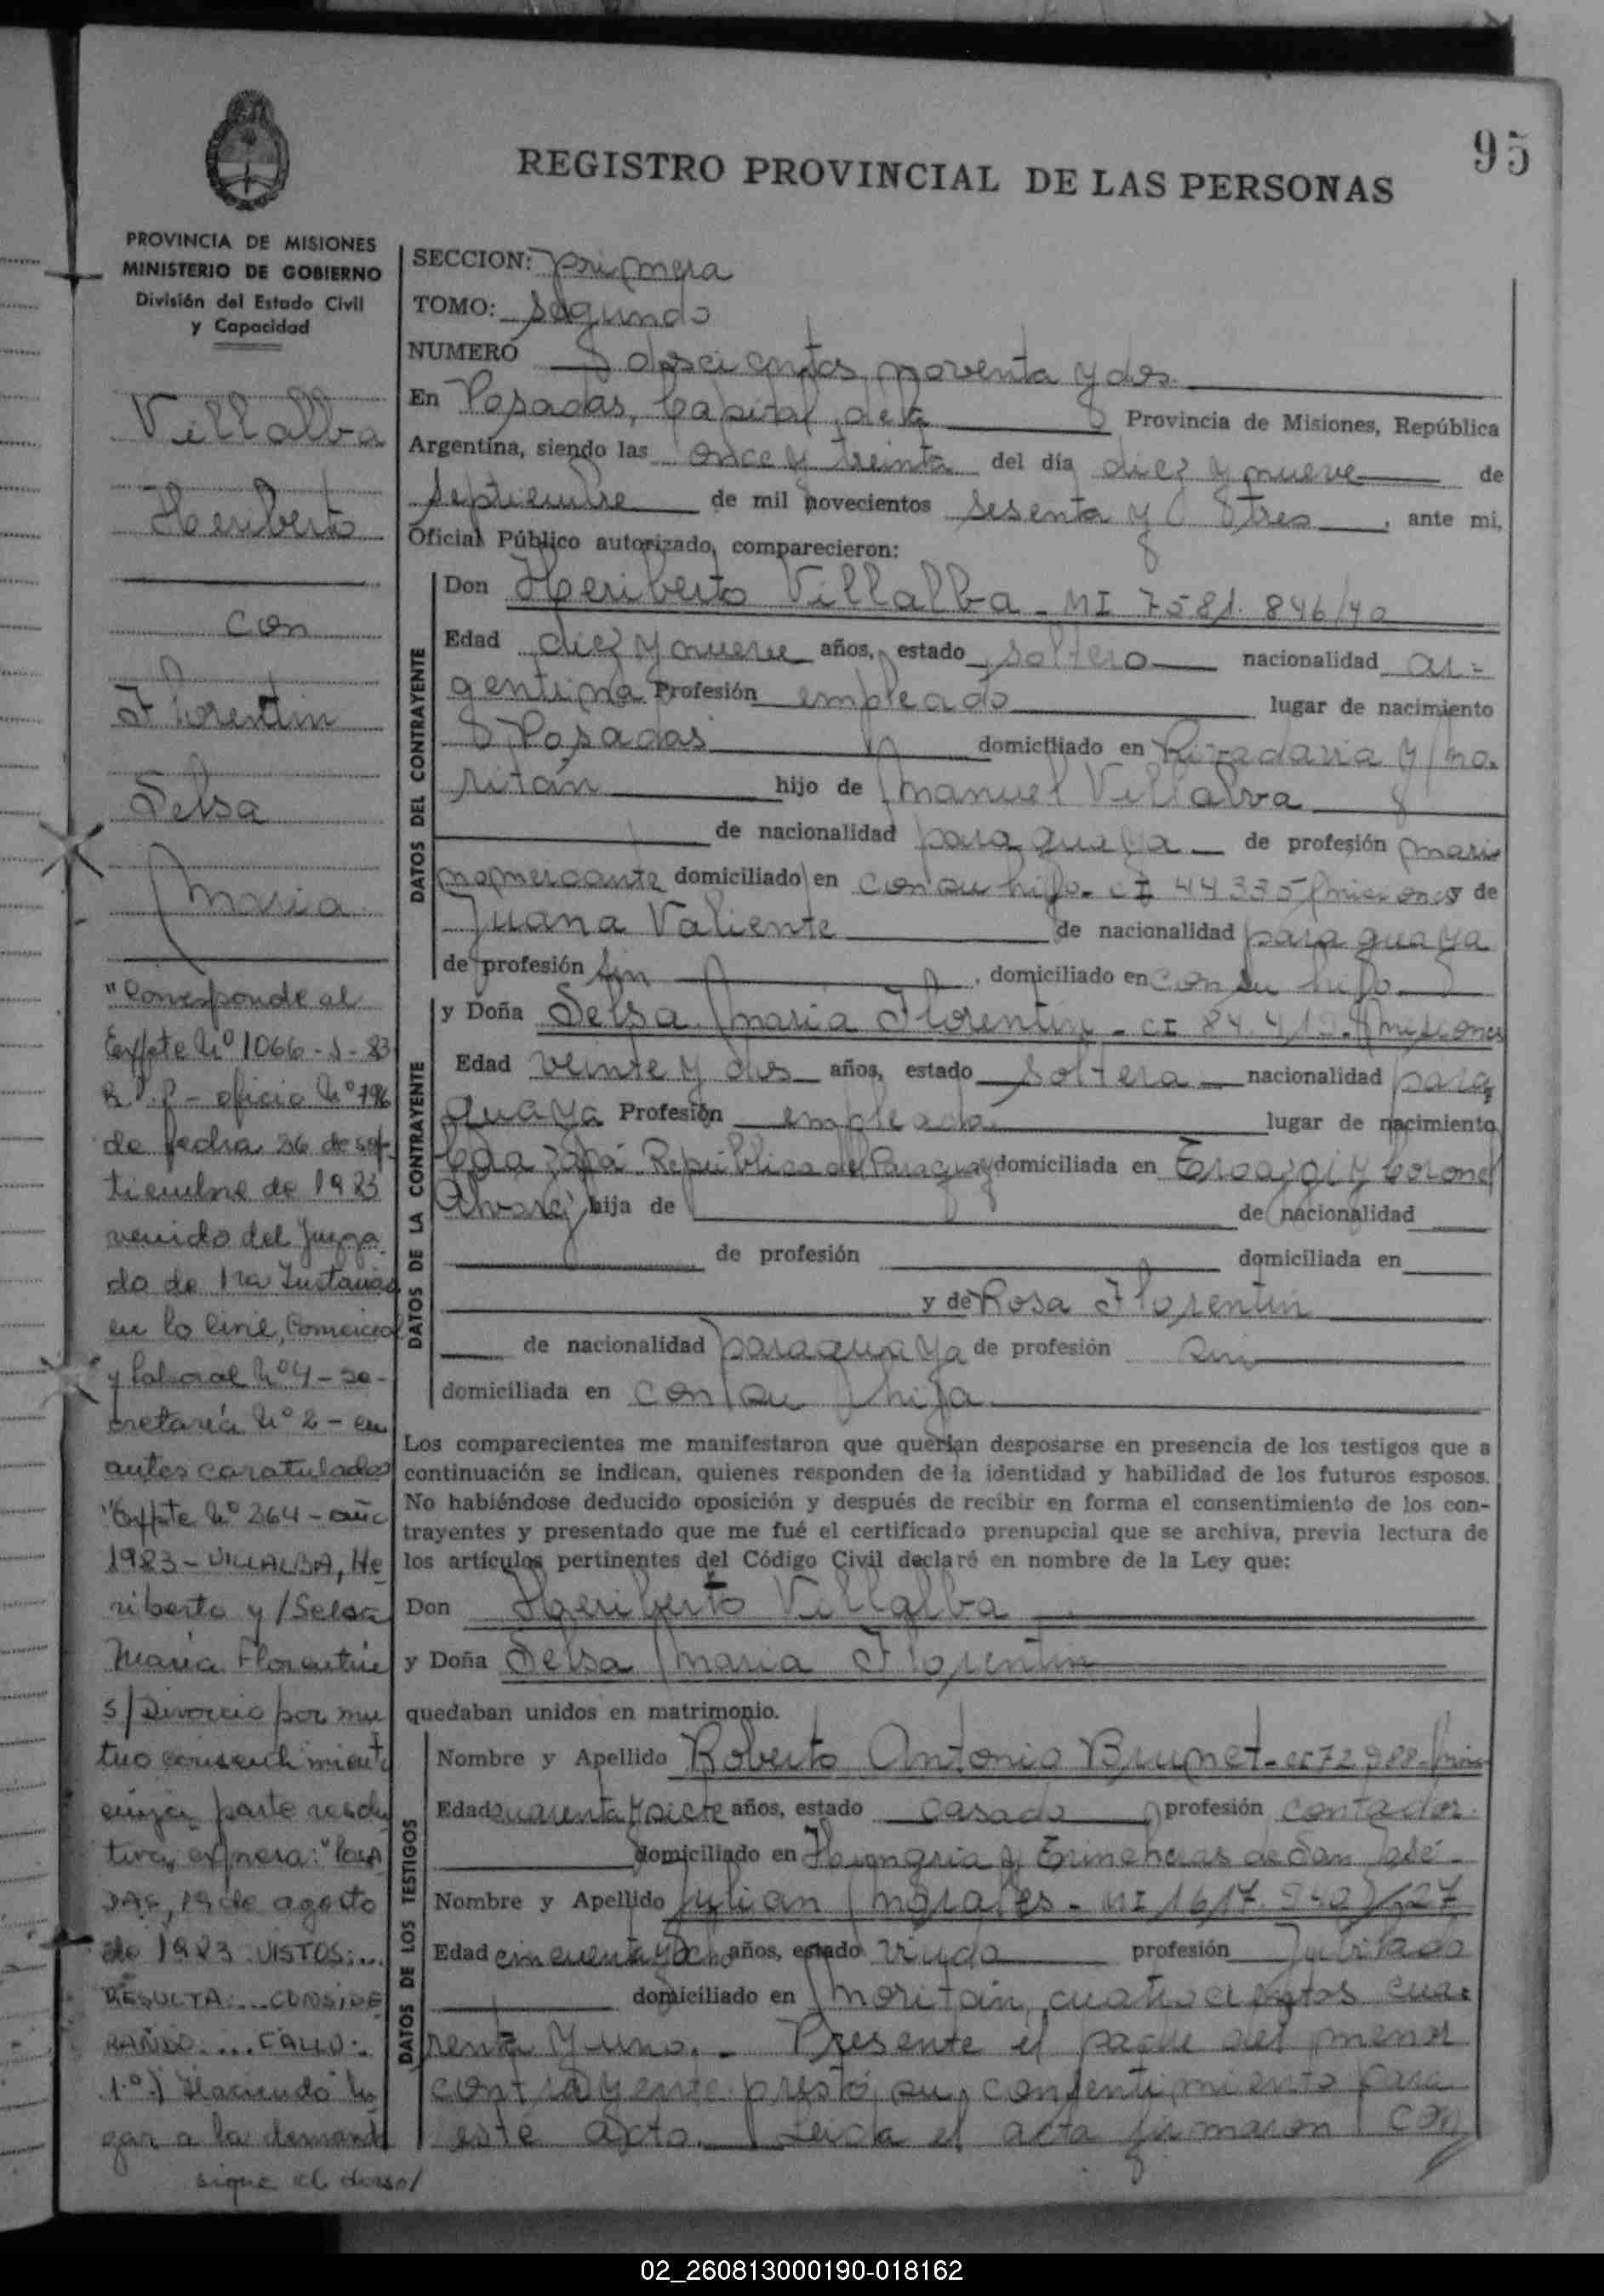 95
REGISTRO PROVINCIAL DE LAS PERSONAS
PROVINCIA DE MISIONES
MINISTERIO DE GOBIERNO
División del Estado Civil
y Capacidad
Villalba
Heriberto
con
Florentin
Selsa
Maria
"Corresponde al
Expte Nº 1066-S-83
R.P.P - oficio Nº 796
de fecha 26 de sep-
tiembre de 1983
venido del Juzga
do de 1ra Instancia
en lo Civil, Comercial
y Laboral Nº 4 - se-
cretaría Nº 2 - en
autos caratulados
"Expte Nº 264 - año
1983 - VILLALBA, He
riberto y/Selsa
María Florentín
s/Divorcio por mu
tuo consentimiento
cuya parte resolu
tiva expresa: "POSA
DAS, 19 de agosto
de 1983. VISTOS:...
RESULTA:... CONSIDE
RANDO:... FALLO:
1º) Haciendo lu
gar a la demand
sigue al dorso/
SECCION: primera
TOMO: segundo
NUMERO doscientos noventa y dos
En Posadas, Capital de la Provincia de Misiones, República
Argentina, siendo las once y treinta del día diez y nueve de
septiembre de mil novecientos sesenta y tres, ante mi,
Oficial Público autorizado, comparecieron:
DATOS DEL CONTRAYENTE
Don Heriberto Villalba - MI 7581.846/40
Edad diez y nueve años, estado soltero nacionalidad ar-
gentina Profesión empleado lugar de nacimiento
Posadas domiciliado en Rivadavia y Mo.
ritán hijo de Manuel Villalva
de nacionalidad paraguaya de profesión mari
no mercante domiciliado en con su hijo - CI 44335 Misiones y de
Juana Valiente de nacionalidad paraguaya
de profesión sin, domiciliado en con su hijo
DATOS DE LA CONTRAYENTE
y Doña Selsa Maria Florentin - CI 84.412. Misiones
Edad veinte y dos años, estado soltera nacionalidad para
guaya Profesión empleada lugar de nacimiento
Caazapá República del Paraguay domiciliada en y Coronel
Alvarez hija de de nacionalidad
de profesión domiciliada en
y de Rosa Florentin
de nacionalidad paraguaya de profesión sin
domiciliada en con su hija
Los comparecientes me manifestaron que querian desposarse en presencia de los testigos que a
continuación se indican, quienes responden de la identidad y habilidad de los futuros esposos.
No habiéndose deducido oposición y después de recibir en forma el consentimiento de los con-
trayentes y presentado que me fué el certificado prenupcial que se archiva, previa lectura de
los artículos pertinentes del Código Civil declaré en nombre de la Ley que:
Don Heriberto Villalba
y Doña Selsa Maria Florentin
quedaban unidos en matrimonio.
DATOS DE LOS TESTIGOS
Nombre y Apellido Roberto Antonio Brunet - CI 72.988 - Mis
Edad cuarenta y siete años, estado casado profesión contador.
domiciliado en Hungria y Trincheras de San José -
Nombre y Apellido Julian Morales - MI 1617.940/27
Edad cincuenta y ocho años, estado viudo profesión Jubilado
domiciliado en Moritán, cuatrocientos cua.
renta y uno. - Presente el padre del menor
contrayente prestó su consentimiento para
este acto. Leida el acta firmaron con
02_260813000190-018162